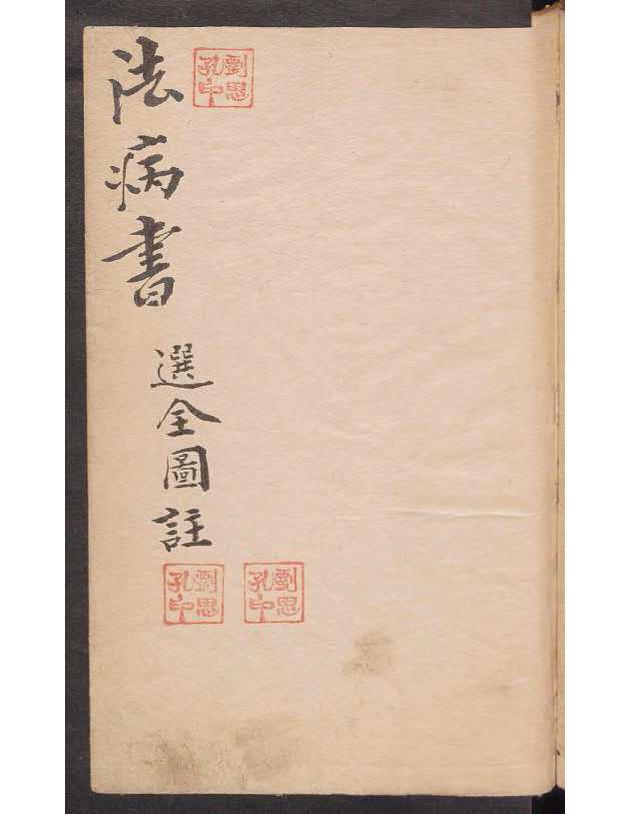 劉思
孔印
法病書
選全圖註
劉思
孔印
劉思
孔印